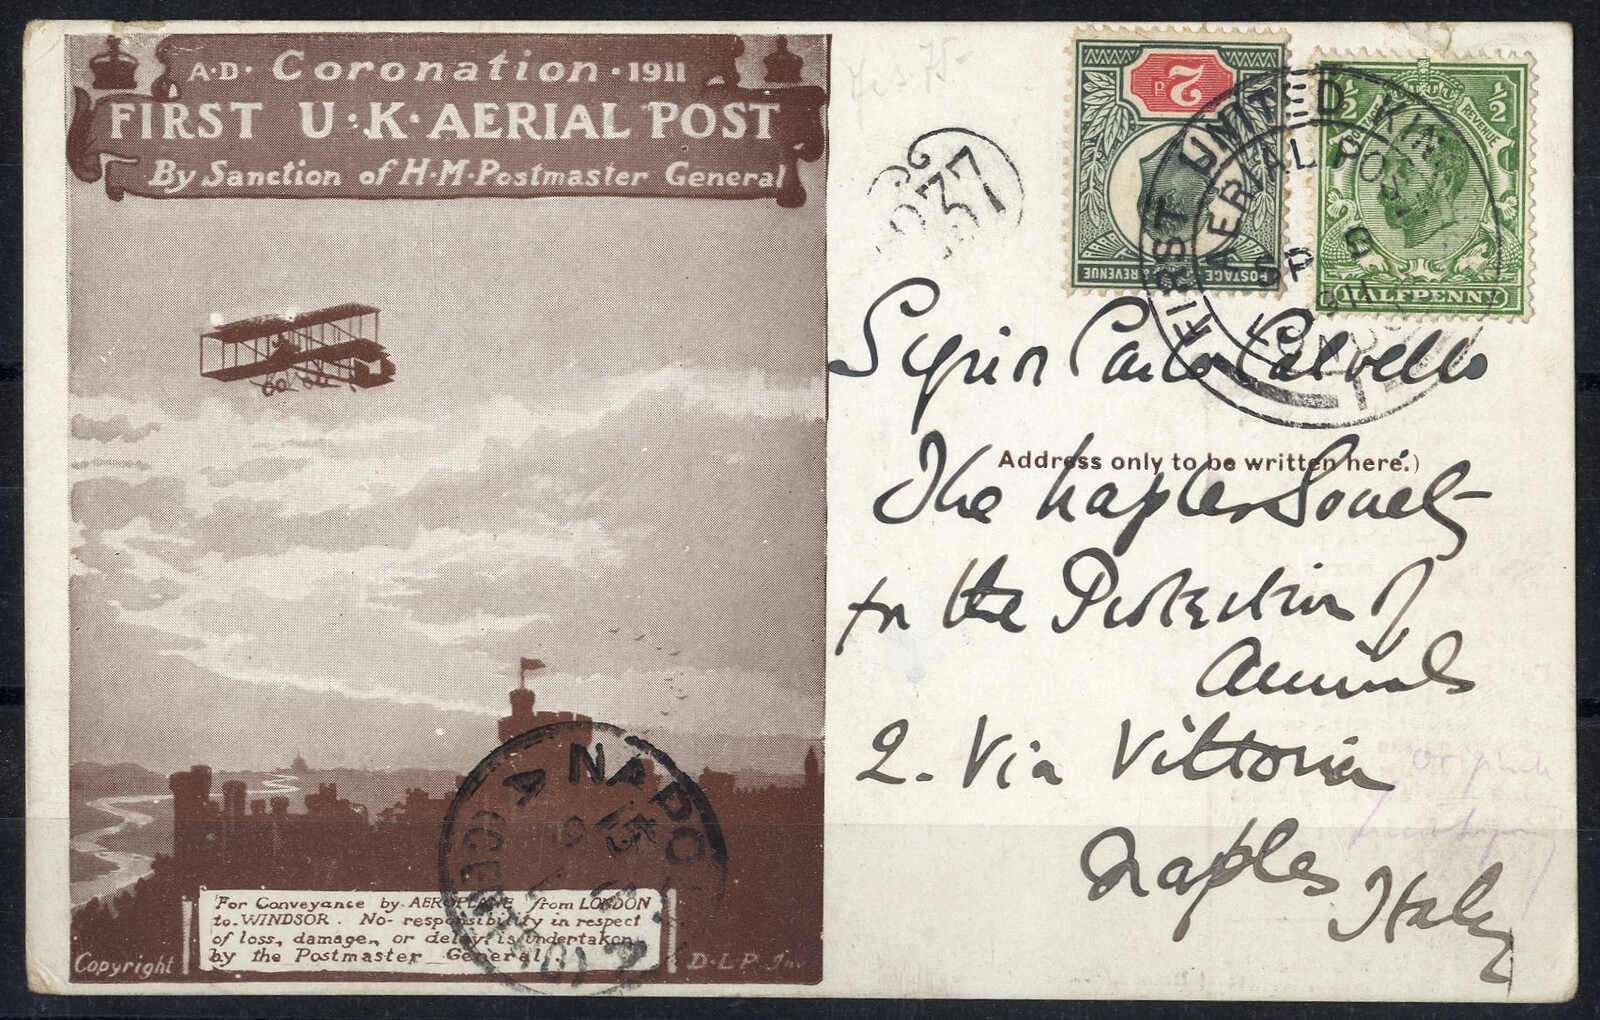 A·D· Coronation ·1911
FIRST U·K·AERIAL POST
By Sanction of H·M·Postmaster General
For Conveyance by AEROPLANE from LONDON
to WINDSOR. No responsibility in respect
of loss, damage, or delay is undertaken
by the Postmaster General.
Copyright
D·L·P. Inv
NAPOLI
37
2D
POSTAGE & REVENUE
½ ½
POSTAGE REVENUE
HALFPENNY
FIRST UNITED KINGDOM
AERIAL POST
LONDON
1
Signor Carlo Calvello
Address only to be written here.)
The Naples Society
for the Protection of
Animals
2. Via Vittoria
Naples
Italy